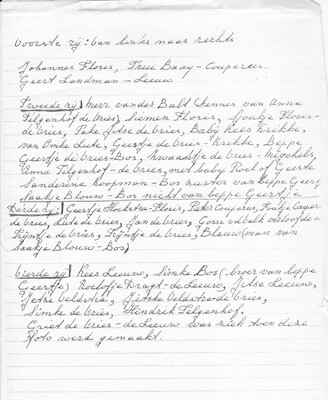 Voorste rij: van links naar rechts
Johannes Flores, Truu Baay - Couperus.
Geert Landman - Leeuw
Tweede rij) meer van der Bald kennes van Anna
Felgenhof de Vries, Siemen Flores, Sjoukje Flores-
de Vries, Take Jitse de Vries, Baby Kees Krikke,
van Omke Lute, Geertje de Vries - Krikke, Beppe
Geertje de Vries-Bos, de Vries - Migchels,
Anna Felgenhof - de Vries, met baby Roel of Geerte
Sanderine Koopman - Bos zuster van beppe Geert,
Saakje Blauw - Bos nicht van beppe Geertje
Derde rij: Geertje Hoekstra-Flores, Pieter Couperus, Foultje Couper
de Vries, Lute de Vries, Jan de Vries, Gosse valbalk verloofde v.
Trijntje de Vries, Trijntje de Vries, Blauw (man van
Saakje Blauw - Bos)
vierde rij Kees Leeuw, Simke Bos (broer van beppe
Geertje) Roelofje Dragt - de Leeuw, Jitse Leeuw,
Jetse Veldstra, Jitske Veldstra - de Vries,
Simke de Vries, Hindrik Felgenhof.
Griet de Vries - de Leeuw was niet toen deze
foto werd gemaakt.